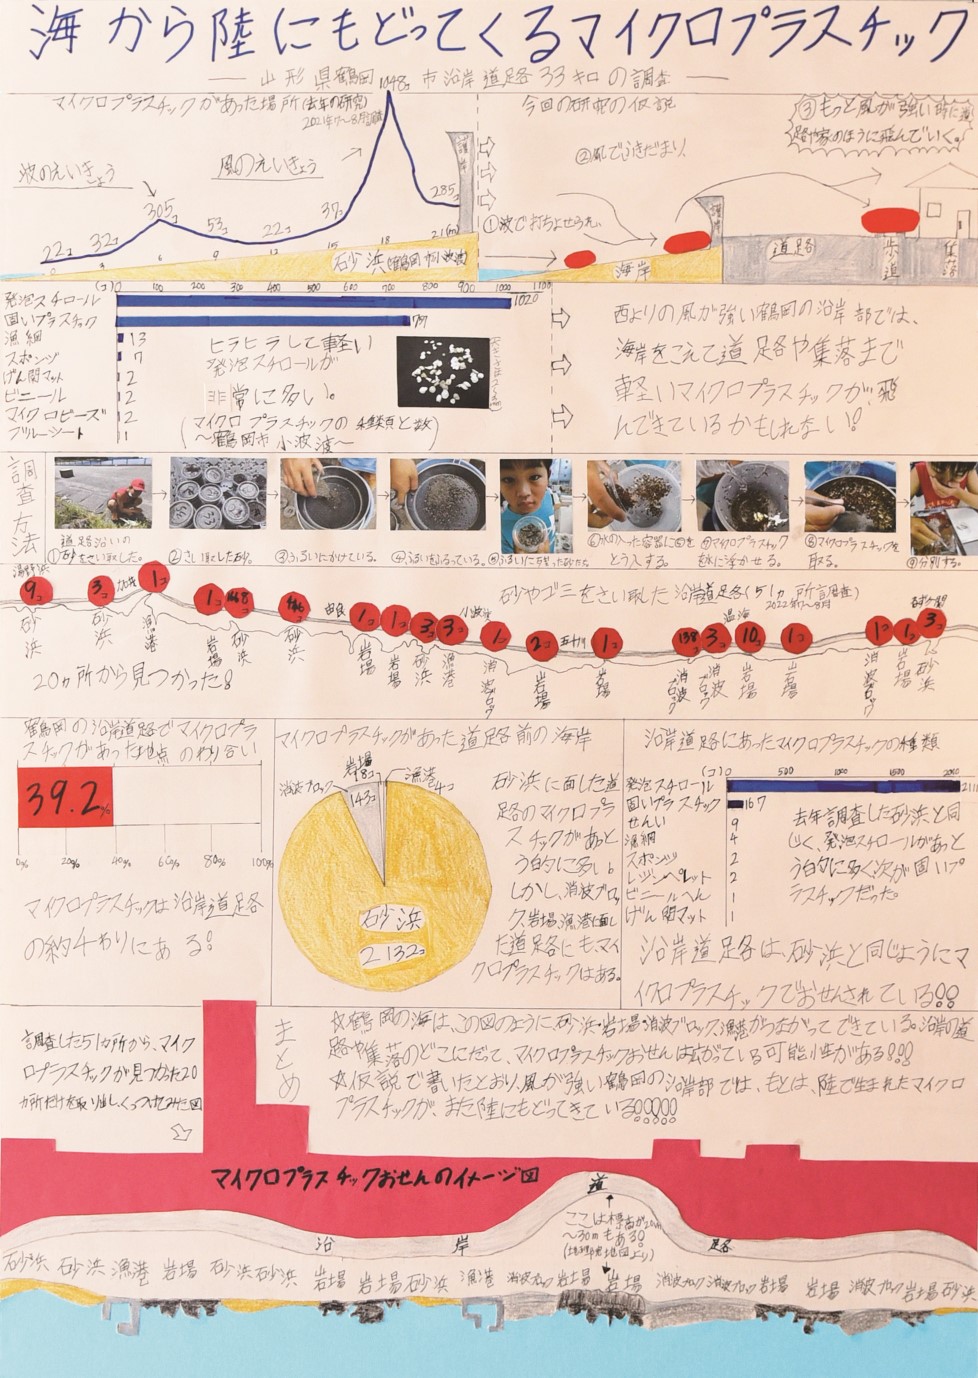 海から陸にもどってくるマイクロプラスチック
― 山形県鶴岡市沿岸道路33キロの調査 ―
マイクロプラスチックがあった場所(去年の研究)
2021年7～8月調査
波のえいきょう
風のえいきょう
22コ
32コ
305コ
53コ
22コ
37コ
1048コ
285コ
0 3 6 9 12 15 18 21(m)
護岸
砂浜(鶴岡市小波渡)
今回の研究の仮説
①波で打ちよせられ、
②風でふきだまり、
③もっと風が強い時に道
路や家のほうに飛んでいく。
海岸
護岸
道路
歩道
住宅
(コ)0 100 200 300 400 500 600 700 800 900 1000 1100
発泡スチロール 1020
固いプラスチック
漁網 13
スポンジ 7
げん関マット 2
ビニール 2
マイクロビーズ 2
ブルーシート 1
ヒラヒラして軽い
発泡スチロールが
非常に多い。
(マイクロプラスチックの種類と数)
～鶴岡市小波渡～
西よりの風が強い鶴岡の沿岸部では、
海岸をこえて道路や集落まで
軽いマイクロプラスチックが、飛
んできているかもしれない!
調査方法
①道路沿いの
砂をさい取した。
②さい取した砂。
③ふるいにかけている。
④ふるいをふるっている。
⑤ふるいに残った砂たち
⑥水の入った容器に⑤を
とう入する。
⑦マイクロプラスチック
を水に浮かせる。
⑧マイクロプラスチックを
取る。
⑨分別する。
砂やゴミをさい取した沿岸道路(51ヵ所調査)
2022年7～8月
湯野浜
9コ
砂浜
3コ
砂浜
加茂
1コ
漁港
1コ
岩場
砂浜
砂浜
由良
1コ
岩場
1コ
岩場
3コ
砂浜
3コ
漁港
小波渡
1コ
消波ブロック
2コ
岩場
五十川
1コ
岩場
138コ
消波ブロック
3コ
消波ブロック
温海
10コ
岩場
1コ
岩場
1コ
消波ブロック
1コ
岩場
3コ
砂浜
20ヵ所から見つかった!
鶴岡の沿岸道路でマイクロプラ
スチックがあった地点のわり合い
39.2%
0% 20% 40% 60% 80% 100%
マイクロプラスチックは沿岸道路
の約4わりにある!
マイクロプラスチックがあった道路前の海岸
消波ブロック
143コ
岩場
18コ
漁港
4コ
砂浜
2132コ
砂浜に面した道
路のマイクロプラ
スチックがあっと
う的に多い。
しかし、消波ブロッ
ク、岩場、漁港に面し
た道路にも、マイ
クロプラスチックはある。
沿岸道路にあったマイクロプラスチックの種類
(コ)0 500 1000 1500 2000
発泡スチロール 2111
固いプラスチック 167
せんい 9
漁網 4
スポンジ 2
レジンペレット 2
ビニールへん 1
げん関マット 1
去年調査した砂浜と同
じく、発泡スチロールがあっと
う的に多く、次が固いプ
ラスチックだった。
沿岸道路は、砂浜と同じようにマ
イクロプラスチックでおせんされている!!
調査した51ヵ所から、マイク
ロプラスチックが見つかった20
ヵ所だけを取り出し、くっつけてみた図
まとめ
☆鶴岡の海は、この図のように砂浜・岩場・消波ブロック、漁港がつながってできている。沿岸の道
路や集落のどこにだって、マイクロプラスチックおせんは広がっている可能性がある!!!
☆仮説で書いたとおり、風が強い鶴岡の沿岸部では、もとは、陸で生まれたマイクロ
プラスチックが、また陸にもどってきている!!!!!
マイクロプラスチックおせんのイメージ図
沿岸道路
ここは標高が20m
～30mもある。
(地理院地図より)
砂浜 砂浜 漁港 岩場 砂浜 砂浜 岩場 岩場 砂浜 漁港 消波ブロック 岩場 岩場 消波ブロック 消波ブロック 岩場 岩場 消波ブロック 岩場 砂浜